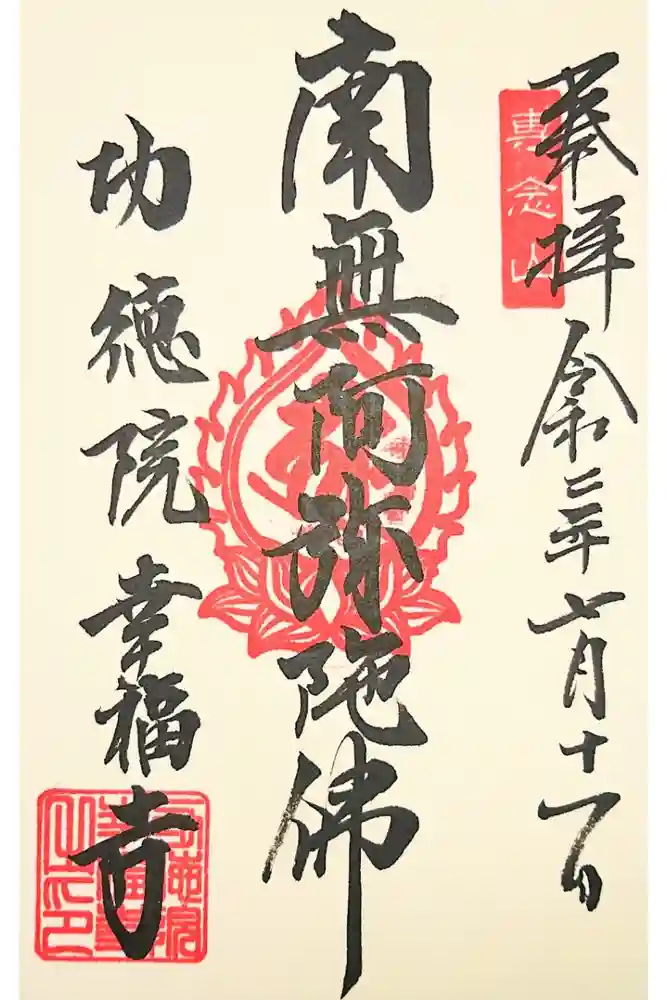 奉拝 令和二年七月十一日
專念山
南無阿弥陀佛
功徳院 幸福寺